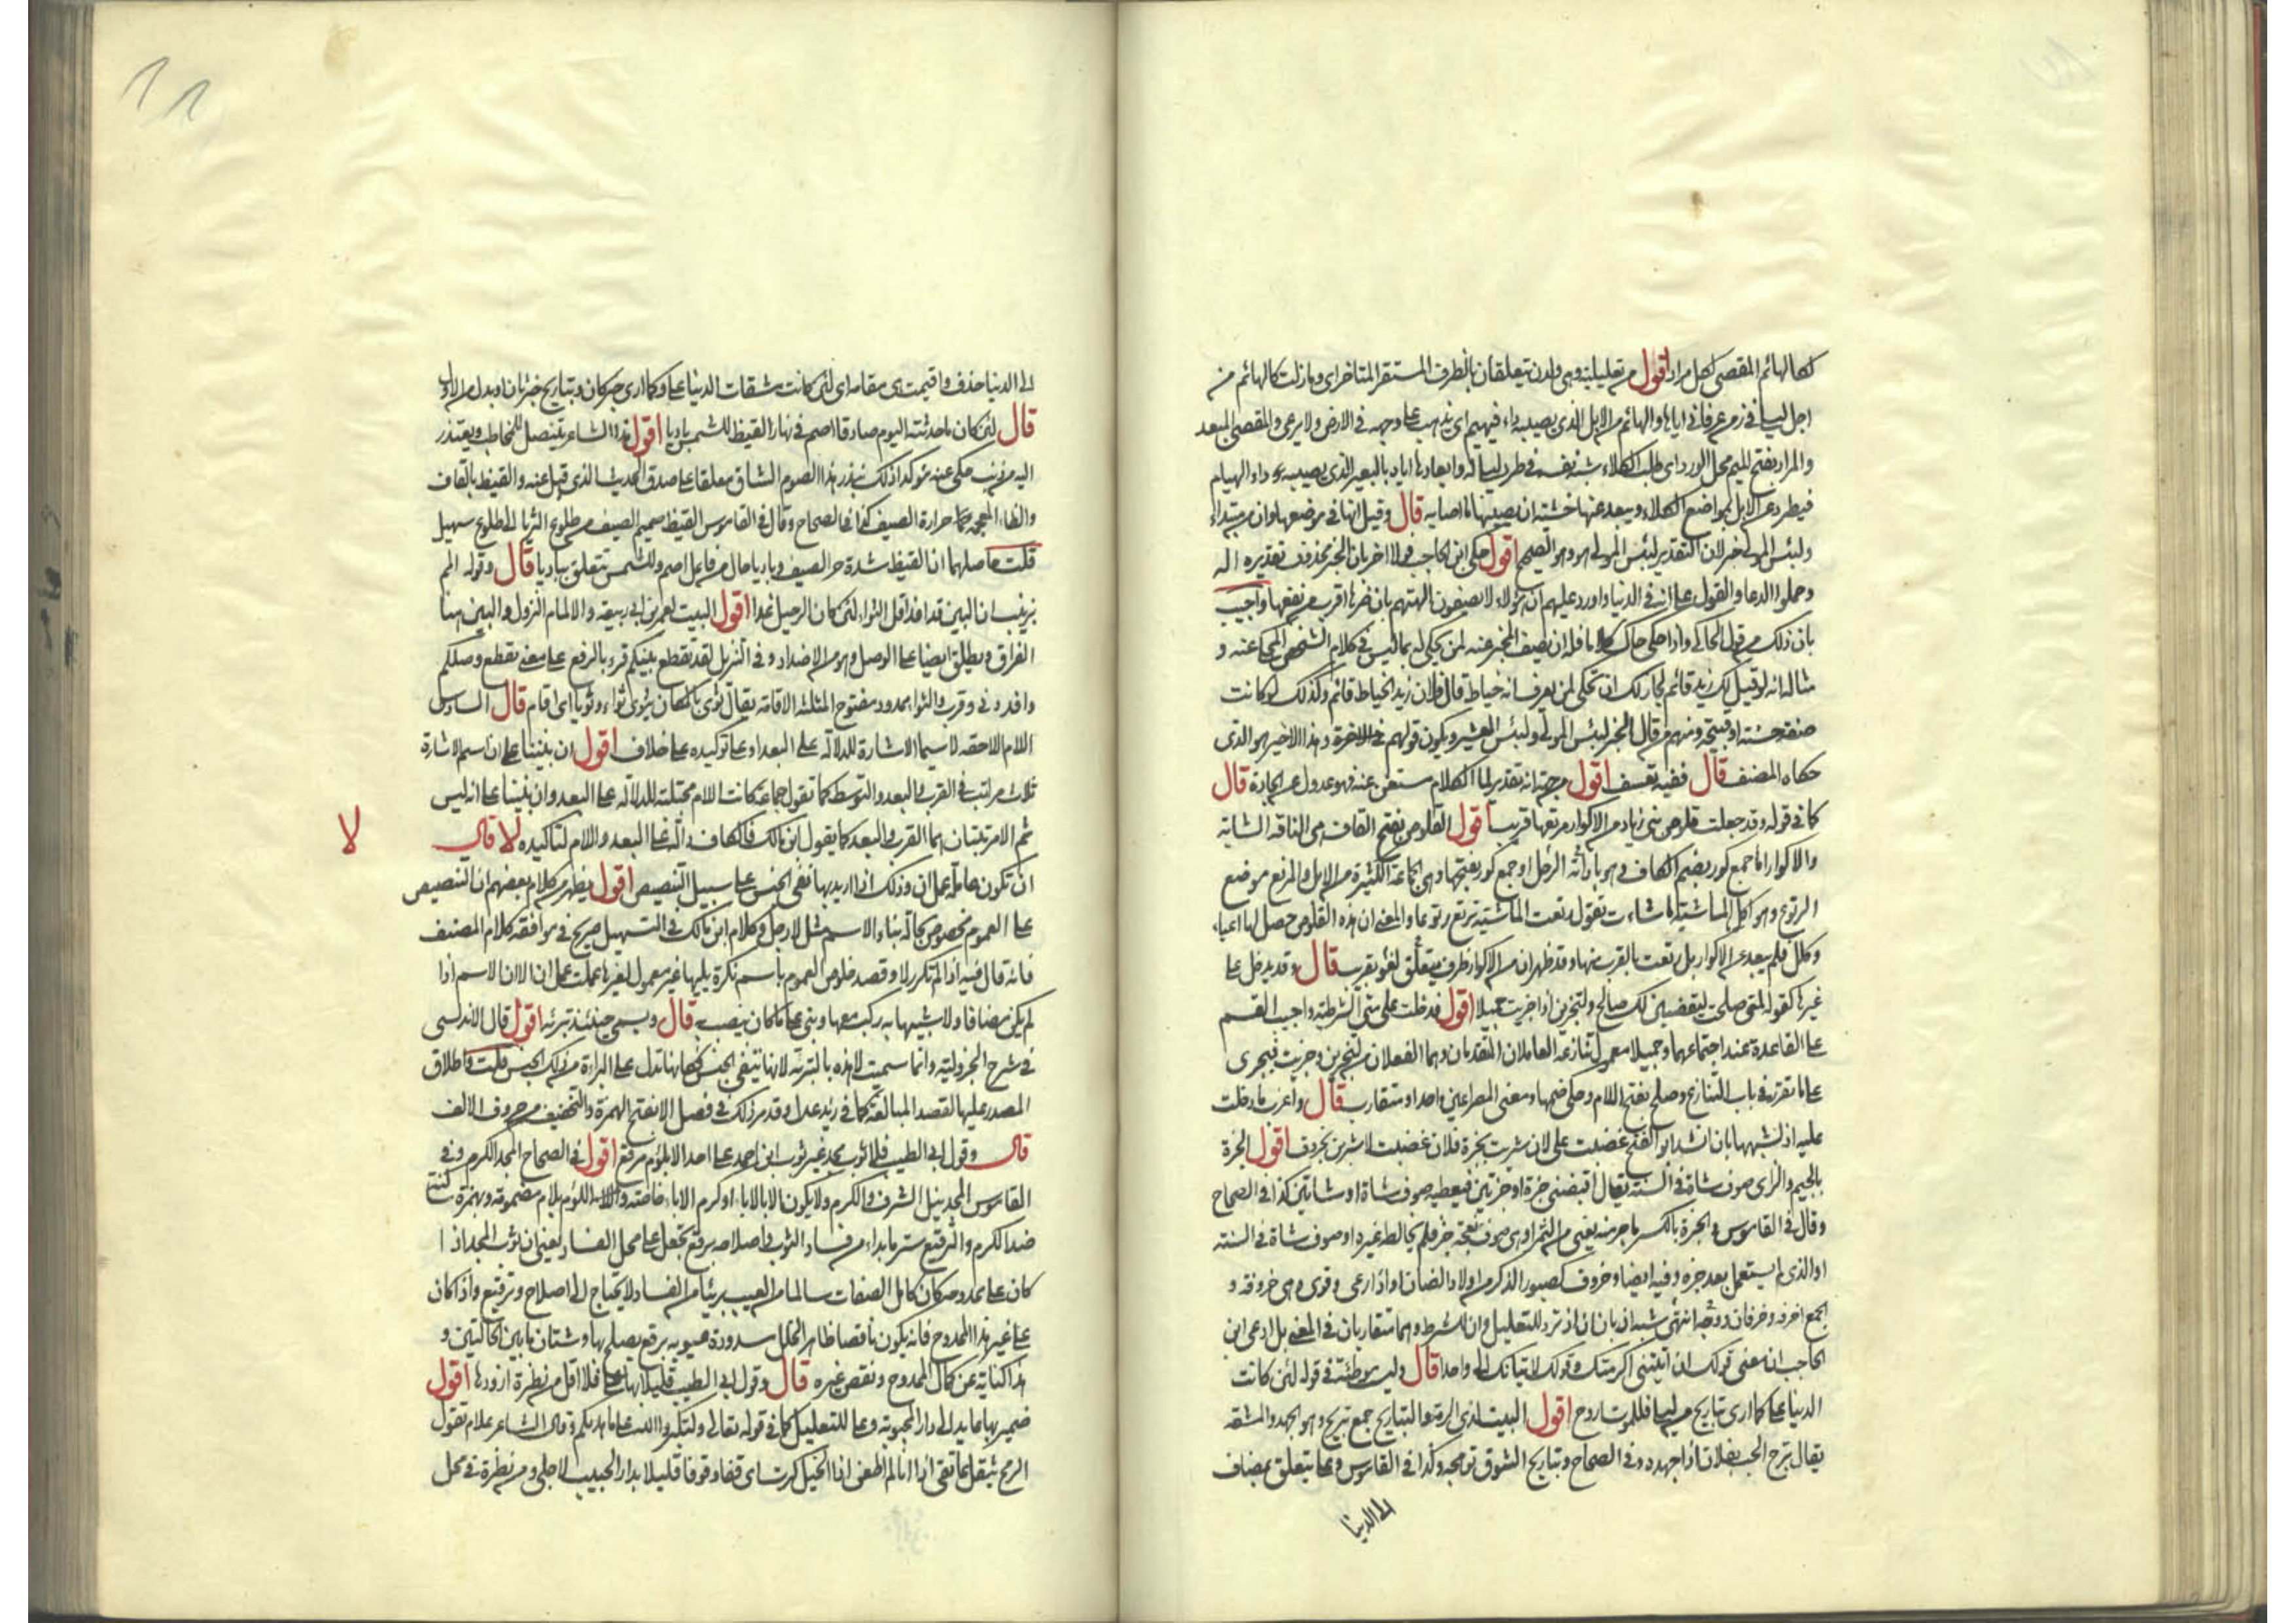 كالهائم المقصى بكل مراد اقول من تعليلية وهي ولدن يتعلقان بالظرف المستقر المتاخر اي وما زلت كالهائم من
اجل ليلى في زمن عرفاني اياها والهائم من الابل الذي يصيبه داء فيهيم اي يذهب على وجهه في الارض ولا يرعى والمقصى المبعد
والمراد بفتح الميم محل الورد اي طلب الكلاء شبه نفسه في طرد ليلى له وابعادها اياه بالبعير الذي يصيبه داء الهيام
فيطرد عن الابل بمواضع الكلاء ويبعد عنها خشية ان يصيبها ما اصابه قال وقيل انها في موضعها وان من مبتداء
ولبئس المولى خبر لان التقدير لبئس المولى هو وهو الصحيح اقول حكى ابن الحاجب قولا اخر بان الخبر محذوف تقديره اله
وحملوا الدعا والقول على انه في الدنيا واورد عليهم ان هؤلاء لا يصفون الهتهم بان ضرها اقرب من نفعها واجيب
بان ذلك من قول الحاكي واذا حكى حاك كلاما فله ان يصف المخبر عنه لمن يحكي له بما ليس في كلام الشخص المحكي عنه و
مثاله انه لو قيل لك زيد قائم لجاز لك ان تحكي لمن يعرف انه خياط قال فلان زيد الخياط قائم وكذلك لو كانت
صفته حسنة او قبيحة ومنهم من قال الخبر لبئس المولى ولبئس العشير ويكون قولهم في الاخرة وهذا الاخير هو الذي
حكاه المصنف قال ففيه تعسف اقول من جهة انه تقدير لما الكلام مستغن عنه فهو عدول عن الجادة قال
كما في قوله وقد جعلت قلوص بني زياد من الاكوار مرتعها قريب اقول القلوص بفتح القاف هي الناقة الشابة
والاكوار اما جمع كور بضم الكاف وهو باداته الرحل او جمع كور بفتحها وهي الجماعة الكثيرة من الابل والمرتع موضع
الرتوع وهو اكل الماشية ما شاءت تقول رتعت الماشية ترتع رتوعا والمعنى ان هذه القلوص حصل لها اعياء
وكلال فلم يبعد عن الاكوار بل رتعت بالقرب منها وقد ظهر ان من الاكوار ظرف متعلق لغو بقريب قال وقد يدخل على
غيرها كقوله لمتى صلحت ليقضين لك صالح ولتجزين اذا جزيت جميلا اقول فدخلت على متى الشرطية واجيب القسم
على القاعدة عند اجتماعهما وجميلا معمول تنازعه العاملان المتقدمان وهما الفعلان من لتجزين وجزيت فيجرى
على ما تقرر في باب التنازع وصلح بفتح اللام وحكى ضمها ومعنى المصراعين واحد او متقارب قال واغرب ما دخلت
عليه اذ لشبهها بان انشد ابو الفتح غضبت علي لان شربت بجزة فلان غضبت لاشربن بخروف اقول الجزة
بالجيم والزاي صوف شاة في السنة يقال اقبضني جزة او جزتين فيعطيه صوف شاة او شاتين كذا في الصحاح
وقال في القاموس الجزة بالكسر ما جز منه يعني من الثمر او هي صوف نعجة جز فلم يخالطه غيره او صوف شاة في السنة
او الذي لم يستعمل بعد جزه وفيه ايضا وخروف كصبور الذكر من اولاد الضان او اذا رعى وقوى وهي خروفة و
الجمع اخرفة وخرفان ووجه انتهى شبه اذ بان ان اذ ترد للتعليل وان للشرط وهما متقاربان في المعنى بل ادعى ابن
الحاجب ان معنى قولك ان اتيتني اكرمتك وقولك لاتيانك الي واحد قال وليست موطئة في قوله لئن كانت
الدنيا علي كما ارى تباريح من ليلى فللموت اروح اقول البيت لذي الرمة والتباريح جمع تبريح وهو الجهد والمشقة
يقال برح الحب بفلان اذا اجهده وفي الصحاح وتباريح الشوق توهجه وكذا في القاموس وعلى يتعلق بمضاف
الى الدنيا
الى الدنيا حذف واقيمت هي مقامه اي لئن كانت مشقات الدنيا علي وكما ارى خبر كان وتباريح خبر ثان او بدل من الاول
قال لئن كان ما حدثته اليوم صادقا اصم في نهار القيظ للشمس باديا اقول هذا الشاعر يتنصل للمخاطب ويعتذر
اليه من ذنب حكى عنه مؤكدا ذلك بنذر هذا الصوم الشاق معلقا على صدق الحديث الذي قيل عنه والقيظ بالقاف
والظاء المعجمة حمارة الصيف كذا في الصحاح وقال في القاموس القيظ صميم الصيف من طلوع الثريا الى طلوع سهيل
قلت حاصلهما ان القيظ شدة حر الصيف وباديا حال من فاعل اصم وللشمس تتعلق بباديا قال وقوله المم
بزينب ان البين قد افدا قل الثواء لئن كان الرحيل غدا اقول البيت لعمر بن ابي ربيعة والالمام النزول والبين هنا
الفراق ويطلق ايضا على الوصل وهو من الاضداد وفي التنزيل لقد تقطع بينكم قرء بالرفع على معنى تقطع وصلكم
وافد دنى وقرب والثواء ممدود مفتوح المثلثة الاقامة يقال ثوى بالمكان يثوى ثواء وثويا اي اقام قال السادس
اللام اللاحقة لاسماء الاشارة للدلالة على البعد او على توكيده على خلاف اقول ان بنينا على ان لاسم الاشارة
ثلاث مراتب في القرب والبعد والتوسط كما تقول جماعة كانت اللام مجتلبة للدلالة على البعد وان بنينا على انه ليس
ثم الا مرتبتان هما القرب والبعد كما يقول ابن مالك فالكاف دالة على البعد واللام لتاكيده لا قال
لا
ان تكون عاملة عمل ان وذلك اذا اريد بها نفي الجنس على سبيل التنصيص اقول يظهر من كلام بعضهم ان التنصيص
على العموم مخصوص بحالة بناء الاسم مثل لا رجل وكلام ابن مالك في التسهيل صريح في موافقة كلام المصنف
فانه قال فيه اذا لم تكرر لا وقصد خلوص العموم باسم نكرة يليها غير معمول لغيرها عملت عمل ان الا ان الاسم اذا
لم يكن مضافا ولا شبيها به ركب معها وبني على ما كان ينصب به قال ويسمى حينئذ تبرئة اقول قال الاندلسي
في شرح الجزولية وانما سميت لا هذه بالتبرئة لانها تنفي الجنس فكانها تدل على البراءة من ذلك الجنس قلت واطلاق
المصدر عليها لقصد المبالغة كما في زيد عدل وقد مر ذلك في فصل الا بفتح الهمزة والتخفيف من حروف الالف
قال وقول ابي الطيب فلا ثوب مجد غير ثوب ابن احمد على احد الا بلؤم مرقع اقول في الصحاح المجد الكرم وفي
القاموس المجد نيل الشرف والكرم ولا يكون الا بالاباء او كرم الاباء خاصة واللؤم بلام مضمومة وبهمزة
ضد الكرم والترقيع ستر ما بدا من فساد الثوب واصلاحه برقع تجعل على محل الفساد يعني ان ثوب المجد اذا
كان على ممدوحه كان كامل الصفات سالما من العيب بريئا من الفساد لا يحتاج الى اصلاح وترقيع واذا كان
على غير هذا الممدوح فانه يكون ناقصا ظاهر الخلل مسدودة عيوبه برقع يصلح بها وشتان ما بين الحالتين و
هذا كناية عن كمال الممدوح ونقص غيره قال وقول ابي الطيب قفا قليلا بها علي فلا اقل من نظرة ازودها اقول
ضمير بها عايد الى دار المحبوبة وعلى للتعليل كما في قوله تعالى ولتكبروا الله على ما هديكم وقال الشاعر علام تقول
الرمح يثقل عاتقي اذا انا لم اطعن اذا الخيل كرت اي قفا وقوفا قليلا بدار الحبيب لاجلي ومن نظرة في محل